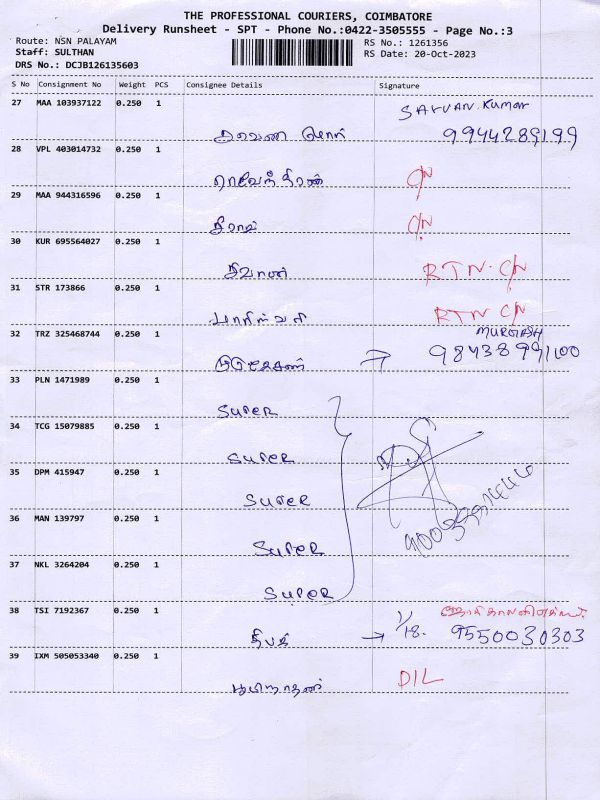 THE PROFESSIONAL COURIERS, COIMBATORE
Delivery Runsheet - SPT - Phone No.:0422-3505555 - Page No.:3
Route: NSN PALAYAM RS No.: 1261356
Staff: SULTHAN RS Date: 20-Oct-2023
DRS No.: DCJB126135603
S No Consignment No Weight PCS Consignee Details Signature
27 MAA 103937122 0.250 1 Sarvan.kumar
9944289199
28 VPL 403014732 0.250 1
C/N
29 MAA 944316596 0.250 1
C/N
30 KUR 695564027 0.250 1
திவான் RTN. C/N
31 STR 173866 0.250 1
RTN. C/N
32 TRZ 325468744 0.250 1
முருகேசன் → 9843899100
33 PLN 1471989 0.250 1
SUPER
34 TCG 15079885 0.250 1
SUPER
35 DPM 415947 0.250 1
SUPER
36 MAN 139797 0.250 1
SUPER
37 NKL 3264204 0.250 1
SUPER
38 TSI 7192367 0.250 1
தீபக் → 1/18. 9550030303
39 IXM 505053340 0.250 1
DIL